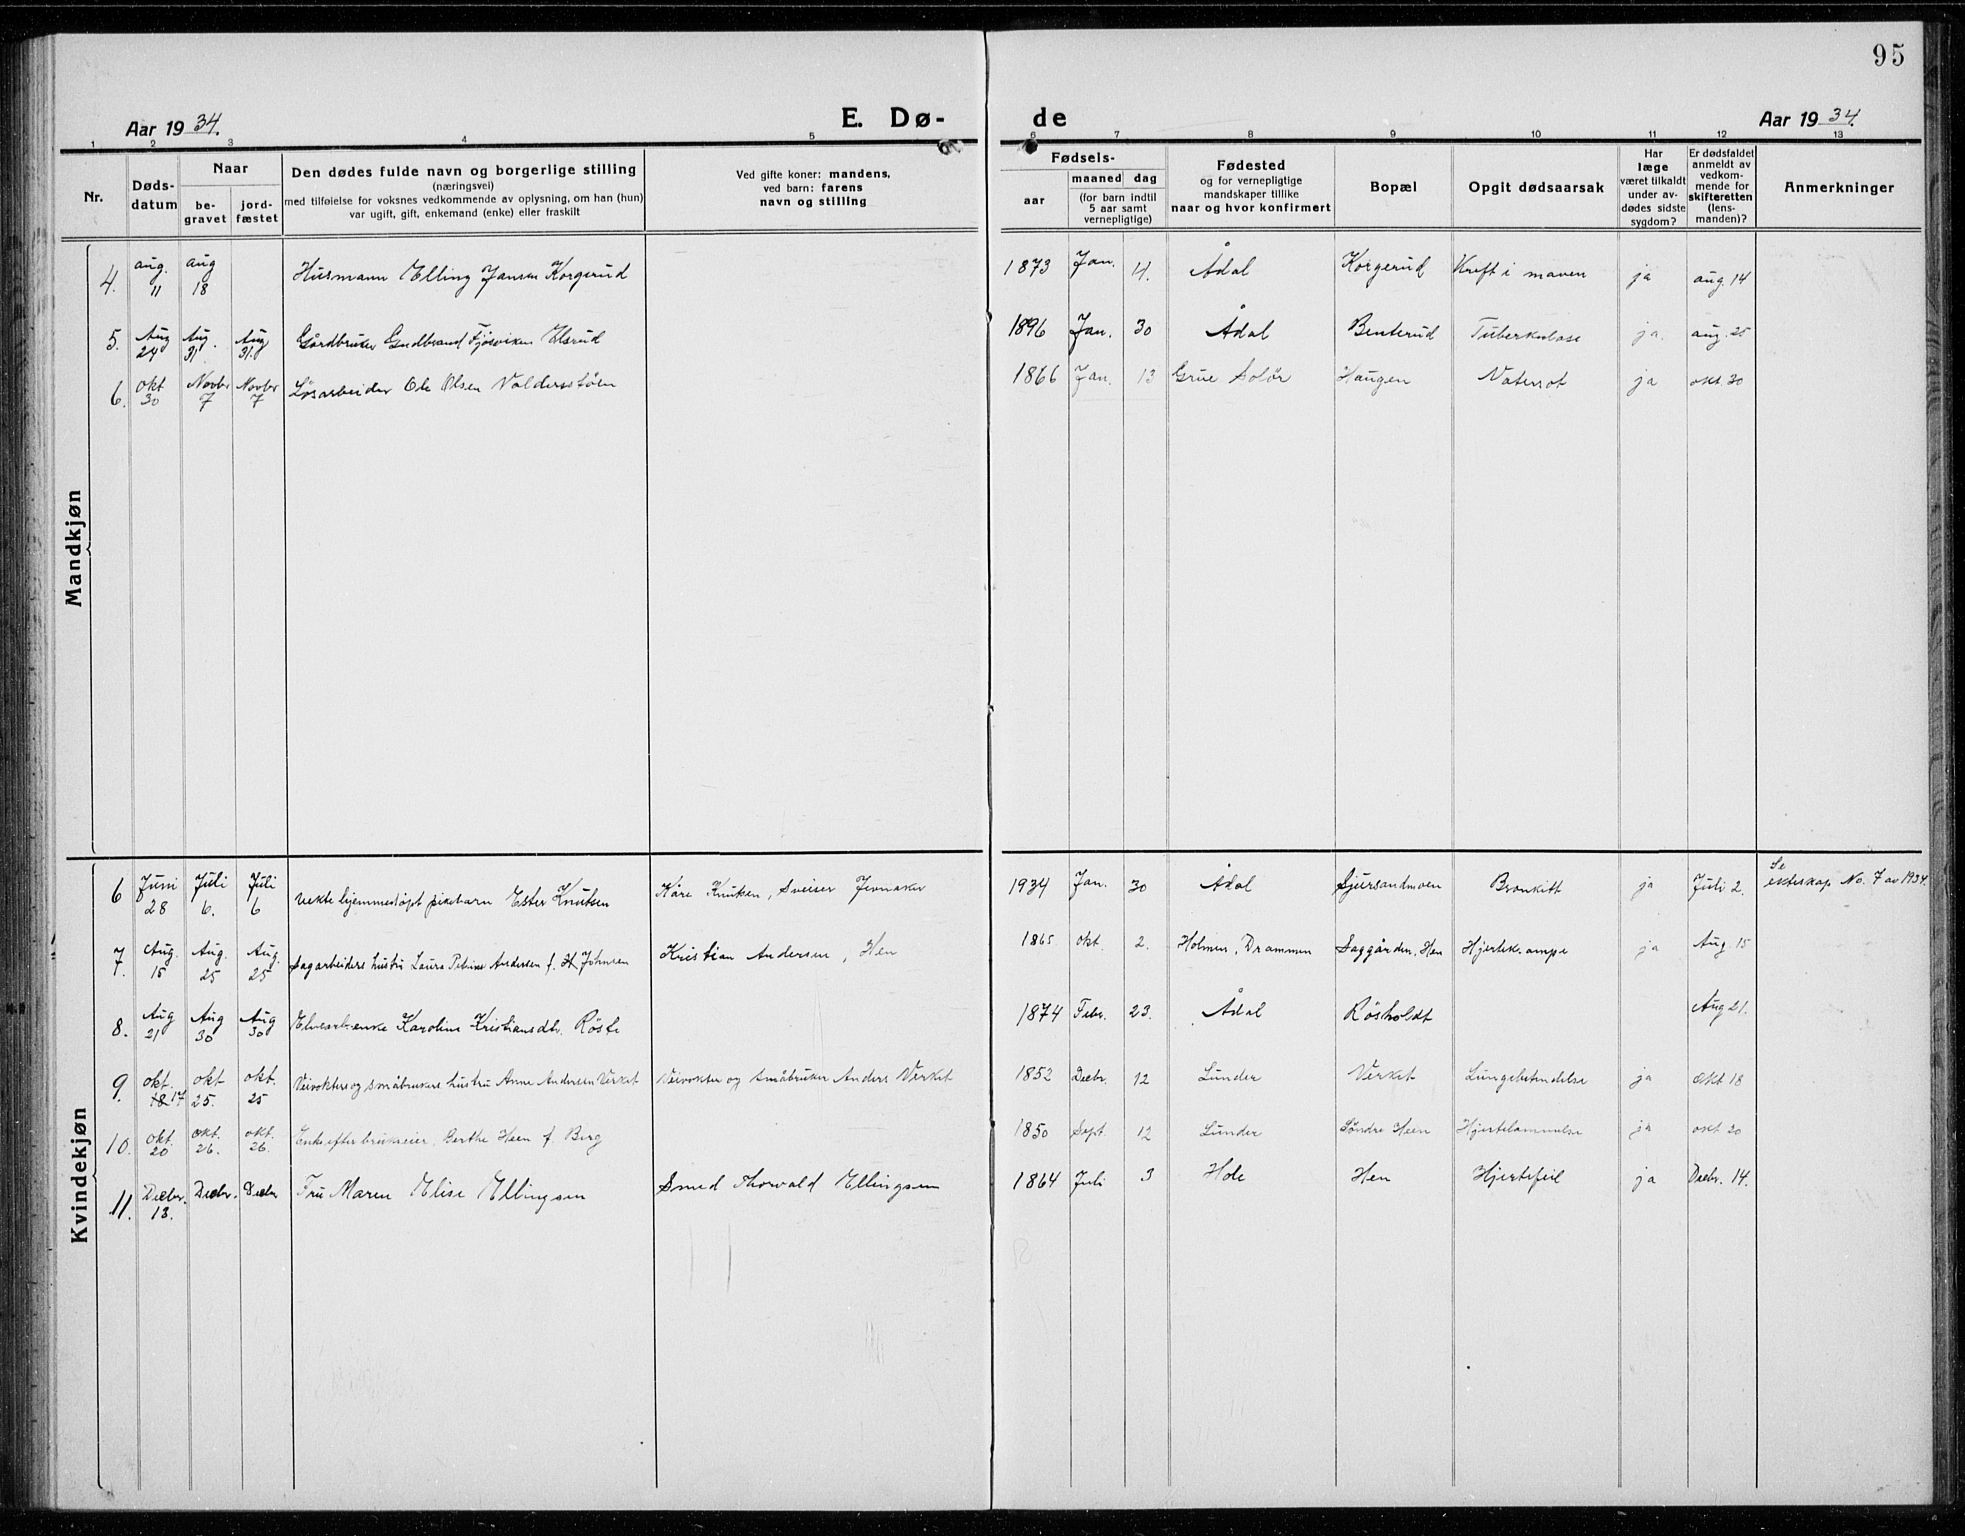 95
Aar 1934.
E. Dø-
de
Aar 1934.
1 2 3 4 5 6 7 8 9 10 11 12 13
Nr.
Døds-
datum
Naar
be-
gravet
jord-
fæstet
Den dødes fulde navn og borgerlige stilling
(næringsvei)
med tilføielse for voksnes vedkommende av oplysning, om han (hun)
var ugift, gift, enkemand (enke) eller fraskilt
Ved gifte koner: mandens,
ved barn: farens
navn og stilling
Fødsels-
aar
maaned dag
(for barn indtil
5 aar samt
vernepligtige)
Fødested
og for vernepligtige
mandskaper tillike
naar og hvor konfirmert
Bopæl
Opgit dødsaarsak
Har
læge
været tilkaldt
under av-
dødes sidste
sygdom?
Er dødsfaldet
anmeldt av
vedkom-
mende for
skifteretten
(lens-
manden)?
Anmerkninger
Mandkjøn
4. aug. 11 aug 18 Husmann Elling Jansen Korgerud 1873 Jan. 4. Ådal Korgerud Kreft i maven ja aug. 14
5. Aug 24 Aug. 31 Aug 31. Gårdbruker Gudbrand Fjøsviken Elsrud 1896 Jan. 30 Ådal Benterud Tuberkulose ja. aug. 25
6. okt 30 Novbr 7 Novbr 7 Løsarbeider Ole Olsen Valdersstøen 1866 Jan. 13 Grue Solør Haugen ja okt 30
Kvindekjøn
6 Juni 28 Juli 6. Juli 6 ekte hjemmedøpt pikebarn Ester Knutsen Kåre Knutsen, Sveiser Jevnaker 1934 Jan. 30 Ådal Sjursandmoen Bronkitt ja Juli 2. Se ekteskap No. 7 av 1934.
7. Aug. 15 Aug. 25 Aug. 25 Sagarbeiders hustru Laura Petrine Andersen f. Johnsen Kristian Andersen, Hen 1865 okt. 2. Holmen, Drammen Saggården, Hen Hjertekrampe ja Aug. 15
8. Aug 21 Aug 30 Aug 30 Elvearb.enke Karoline Kristiansdtr. Røste 1874 Febr. 23. Ådal Røsholdt Aug 21.
9. okt. 18 17 okt 25. okt. 25 Veivokters og småbrukers hustru Anne Andersen Verket Veivokter og småbruker Anders Verket 1852 Decbr. 12 Lunder Verket Lungebetendelse ja okt 18
10. okt. 20 okt. 26. okt. 26. Enke efter brukseier, Berthe Heen f. Berg 1850 Sept. 12 Lunder Søndre Heen Hjertelammelse ja okt 20
11. Decbr. 13. Decbr. Decbr Fru Maren Elise Ellingsen Smed Thorvald Ellingsen 1864 Juli 3 Hole Hen Hjertefeil ja Decbr. 14.